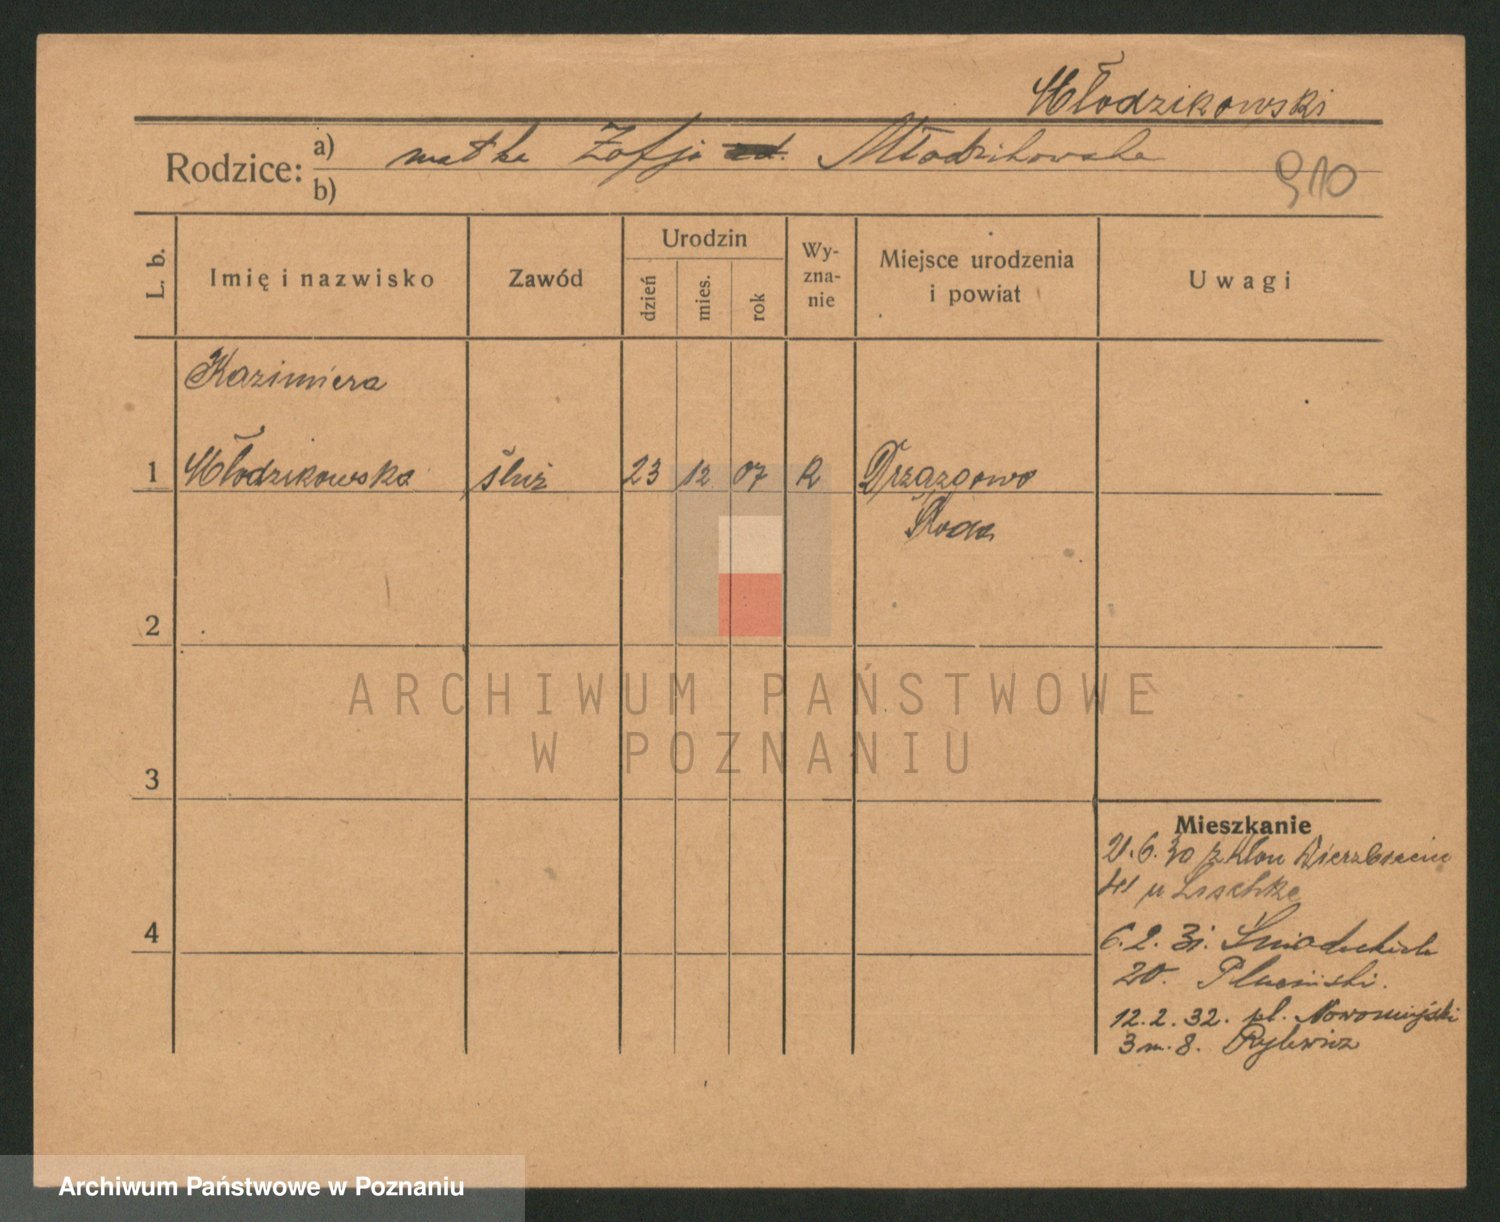 Młodzikowski
Rodzice: a) matka Zofja Młodzikowska
b)
910
L. b.
Imię i nazwisko
Zawód
Urodzin
dzień
mies.
rok
Wy-
zna-
nie
Miejsce urodzenia
i powiat
Uwagi
Kazimiera
1 Młodzikowska służ 23 12 07 R Drzązgowo
Środa
2
3
4
Mieszkanie
21.6.30 Wierzbięcice
41 u Leschke
6.2.31. Śniadeckich
20. Pluciński.
12.2.32. pl. Nowomiejski
3 m. 8. Rylewicz
ARCHIWUM PAŃSTWOWE
W POZNANIU
Archiwum Państwowe w Poznaniu